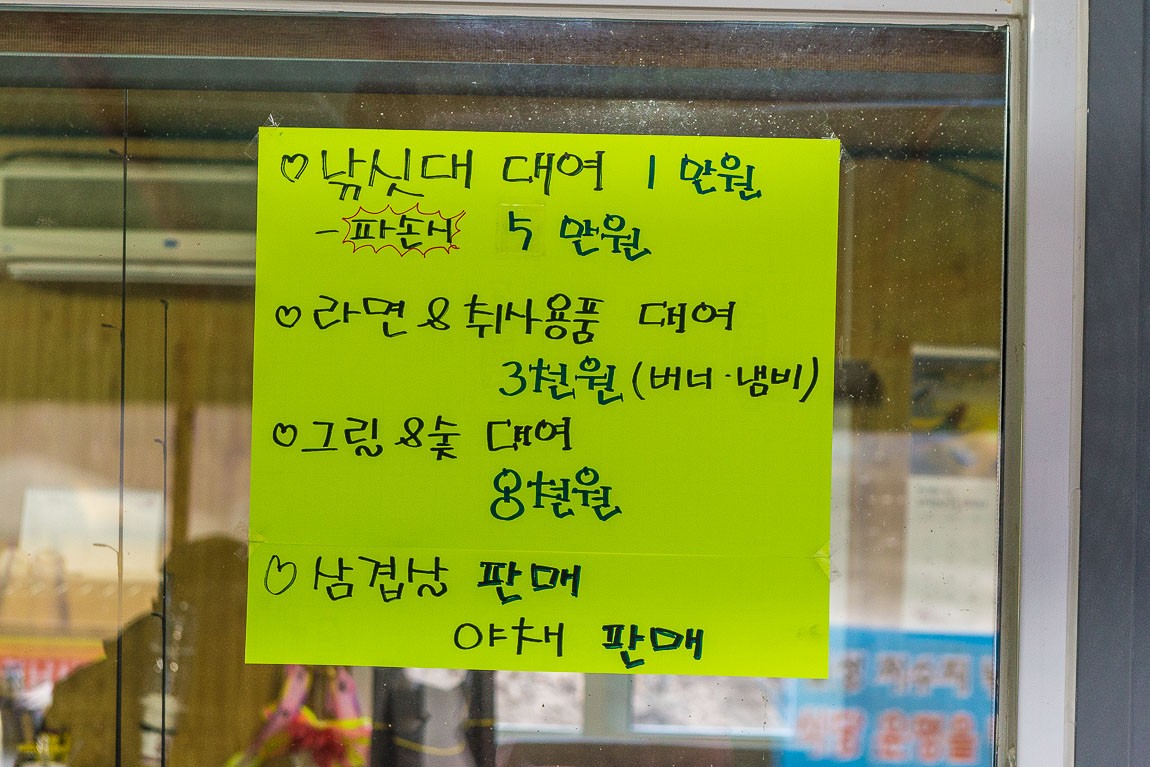 ♡낚싯대 대여 1만원
-파손시 5만원
♡라면&취사용품 대여
3천원(버너·냄비)
♡그릴&숯 대여
8천원
♡삼겹살 판매
야채 판매
저수지